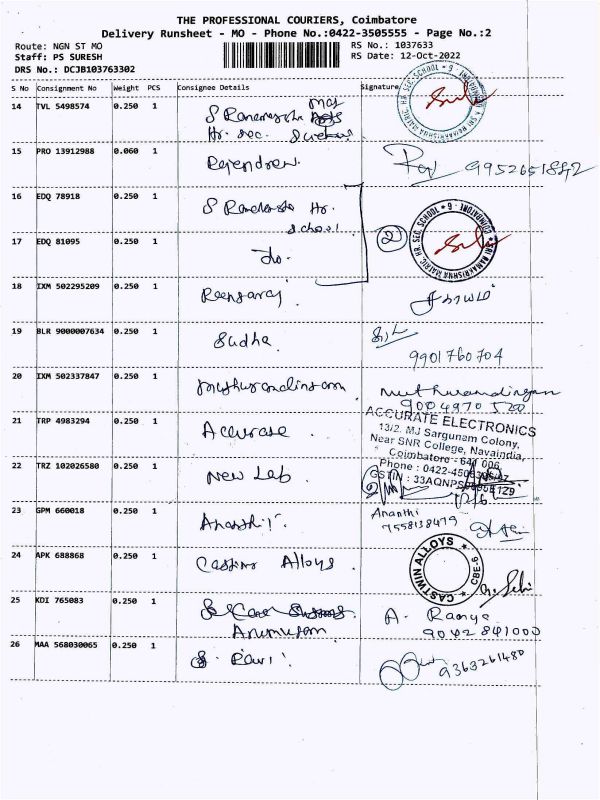 THE PROFESSIONAL COURIERS, Coimbatore
Delivery Runsheet - MO - Phone No.:0422-3505555 - Page No.:2
Route: NGN ST MO
RS No.: 1037633
Staff: PS SURESH
RS Date: 12-Oct-2022
DRS No.: DCJB103763302
S No Consignment No Weight PCS Consignee Details Signature
14 TVL 5498574 0.250 1
Hr. Sec.
15 PRO 13912988 0.060 1 Rajendran
16 EDQ 78918 0.250 1 Hr.
School
17 EDQ 81095 0.250 1 do. 2
SRI RAMAKRISHNA MATRIC. HR. SEC. SCHOOL
18 IXM 502295209 0.250 1
19 BLR 9000007634 0.250 1 Sudha
9901760704
20 IXM 502337847 0.250 1
9004970520
21 TRP 4983294 0.250 1 Accurate
ACCURATE ELECTRONICS
13/2. MJ Sargunam Colony,
Near SNR College, Navaindia,
Coimbatore - 641 006.
Phone : 0422-
GSTIN : 33AQNPS
22 TRZ 102026580 0.250 1 New Lab
23 GPM 660018 0.250 1 Ananthi
Ananthi
7558138479
24 APK 688868 0.250 1 Alloys
CASTWIN ALLOYS
CBE-6
25 KDI 765083 0.250 1
A. Ramya
9042841000
26 MAA 568030065 0.250 1
9363261480